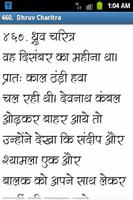 1:04 AM
460. Dhruv Charitra
४६०. ध्रुव चरित्र
वह दिसंबर का महीना था।
प्रातः काल ठंडी हवा
चल रही थी। देवनाथ कंबल
ओढ़कर बाहर आये तो
उन्होंने देखा कि संदीप और
श्यामला एक और
बालक को अपने साथ लेकर